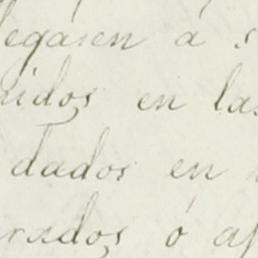 legasen á s
nidos en las
dados en
rados ó as